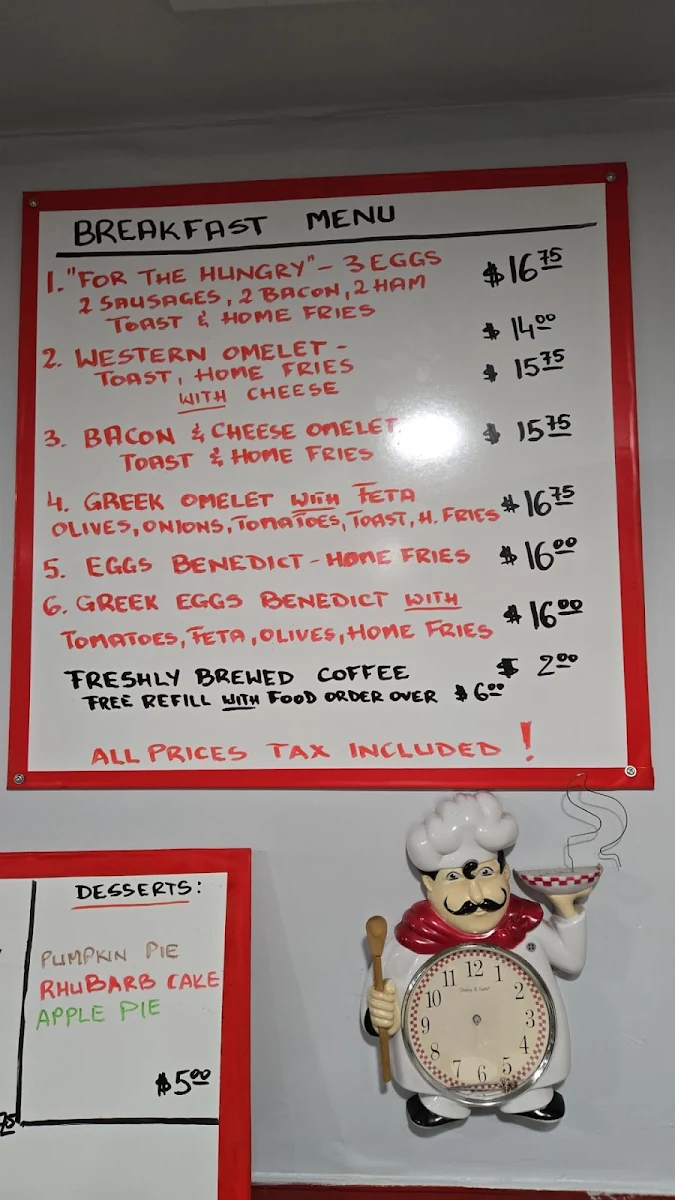 BREAKFAST MENU
1. "FOR THE HUNGRY" - 3 EGGS $16.75
2 SAUSAGES, 2 BACON, 2 HAM
TOAST & HOME FRIES
2. WESTERN OMELET - $14.00
TOAST, HOME FRIES
WITH CHEESE $15.75
3. BACON & CHEESE OMELET $15.75
TOAST & HOME FRIES
4. GREEK OMELET WITH FETA $16.75
OLIVES, ONIONS, TOMATOES, TOAST, H. FRIES
5. EGGS BENEDICT - HOME FRIES $16.00
6. GREEK EGGS BENEDICT WITH $16.00
TOMATOES, FETA, OLIVES, HOME FRIES
FRESHLY BREWED COFFEE $2.00
FREE REFILL WITH FOOD ORDER OVER $6.00
ALL PRICES TAX INCLUDED!
DESSERTS:
PUMPKIN PIE
RHUBARB CAKE
APPLE PIE
$5.00
75
12
1
2
3
4
5
6
7
8
9
10
11